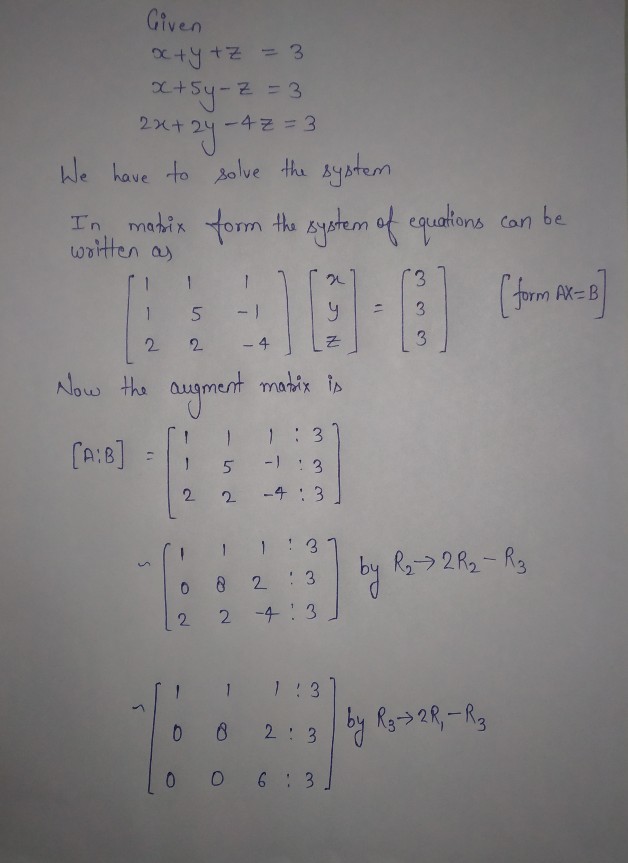 Given
x+y+z = 3
x+5y-z = 3
2x+2y-4z = 3
We have to solve the system
In matrix form the system of equations can be
written as
[1 1 1] [x] = [3]
[1 5 -1] [y] = [3] [form AX=B]
[2 2 -4] [z] = [3]
Now the augment matrix is
[A:B] = [1 1 1 : 3]
[1 5 -1 : 3]
[2 2 -4 : 3]
~ [1 1 1 : 3]
[0 8 2 : 3] by R2→2R2-R3
[2 2 -4 : 3]
~ [1 1 1 : 3]
[0 8 2 : 3] by R3→2R1-R3
[0 0 6 : 3]